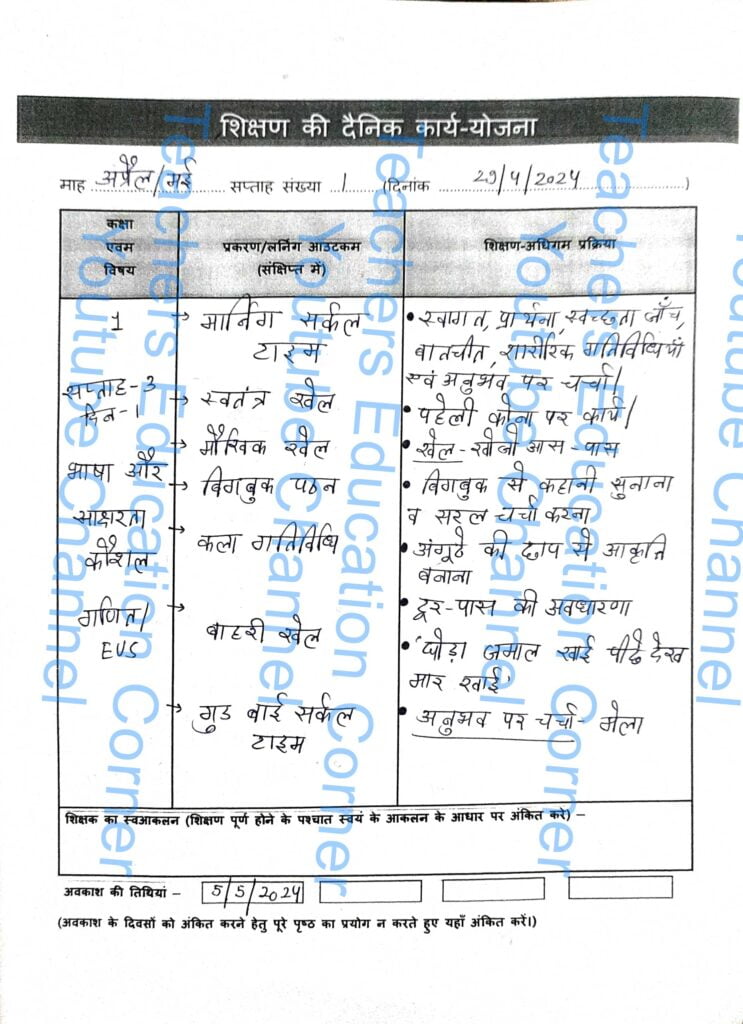 शिक्षण की दैनिक कार्य-योजना
माह अप्रैल/मई सप्ताह संख्या 1 (दिनांक 29/4/2024)
कक्षा
एवम
विषय
प्रकरण/लर्निंग आउटकम
(संक्षिप्त में)
शिक्षण-अधिगम प्रक्रिया
1
सप्ताह-3
दिन-1
भाषा और
साक्षरता
कौशल
गणित/
EVS
→ मार्निंग सर्कल
टाइम
→ स्वतंत्र खेल
→ मौखिक खेल
→ बिगबुक पठन
→ कला गतिविधि
→ बाहरी खेल
→ गुड बाई सर्कल
टाइम
• स्वागत, प्रार्थना, स्वच्छता जाँच,
बातचीत, शारीरिक गतिविधियाँ
एवं अनुभव पर चर्चा।
• पहेली कोना पर कार्य।
• खेल - खोजो आस-पास
• बिगबुक से कहानी सुनाना
व सरल चर्चा करना
• अंगूठे की छाप से आकृति
बनाना
• दूर-पास की अवधारणा
• 'घोड़ा जमाल खाई पीछे देख
मार खाई'
• अनुभव पर चर्चा - मेला
शिक्षक का स्वआकलन (शिक्षण पूर्ण होने के पश्चात स्वयं के आकलन के आधार पर अंकित करे) –
अवकाश की तिथियां – 5/5/2024
(अवकाश के दिवसों को अंकित करने हेतु पूरे पृष्ठ का प्रयोग न करते हुए यहाँ अंकित करें।)
Teachers Education Corner
Youtube Channel
Teachers Education Corner
Youtube Channel
Teachers Education Corner
Youtube Channel